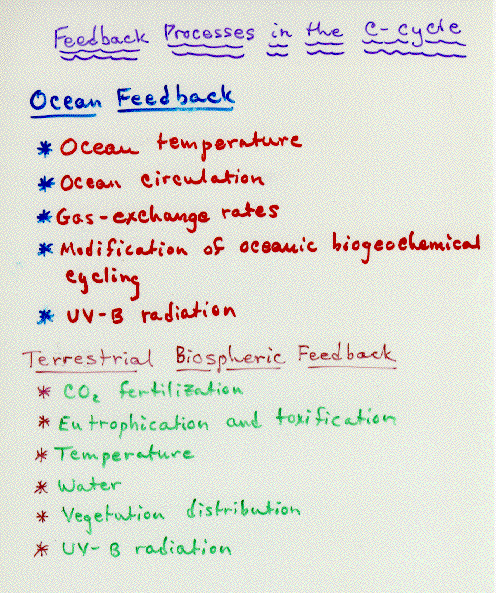 Feedback Processes in the C-cycle
Ocean Feedback
* Ocean temperature
* Ocean circulation
* Gas-exchange rates
* Modification of oceanic biogeochemical
cycling
* UV-B radiation
Terrestrial Biospheric Feedback
* CO₂ fertilization
* Eutrophication and toxification
* Temperature
* Water
* Vegetution distribution
* UV-B radiation